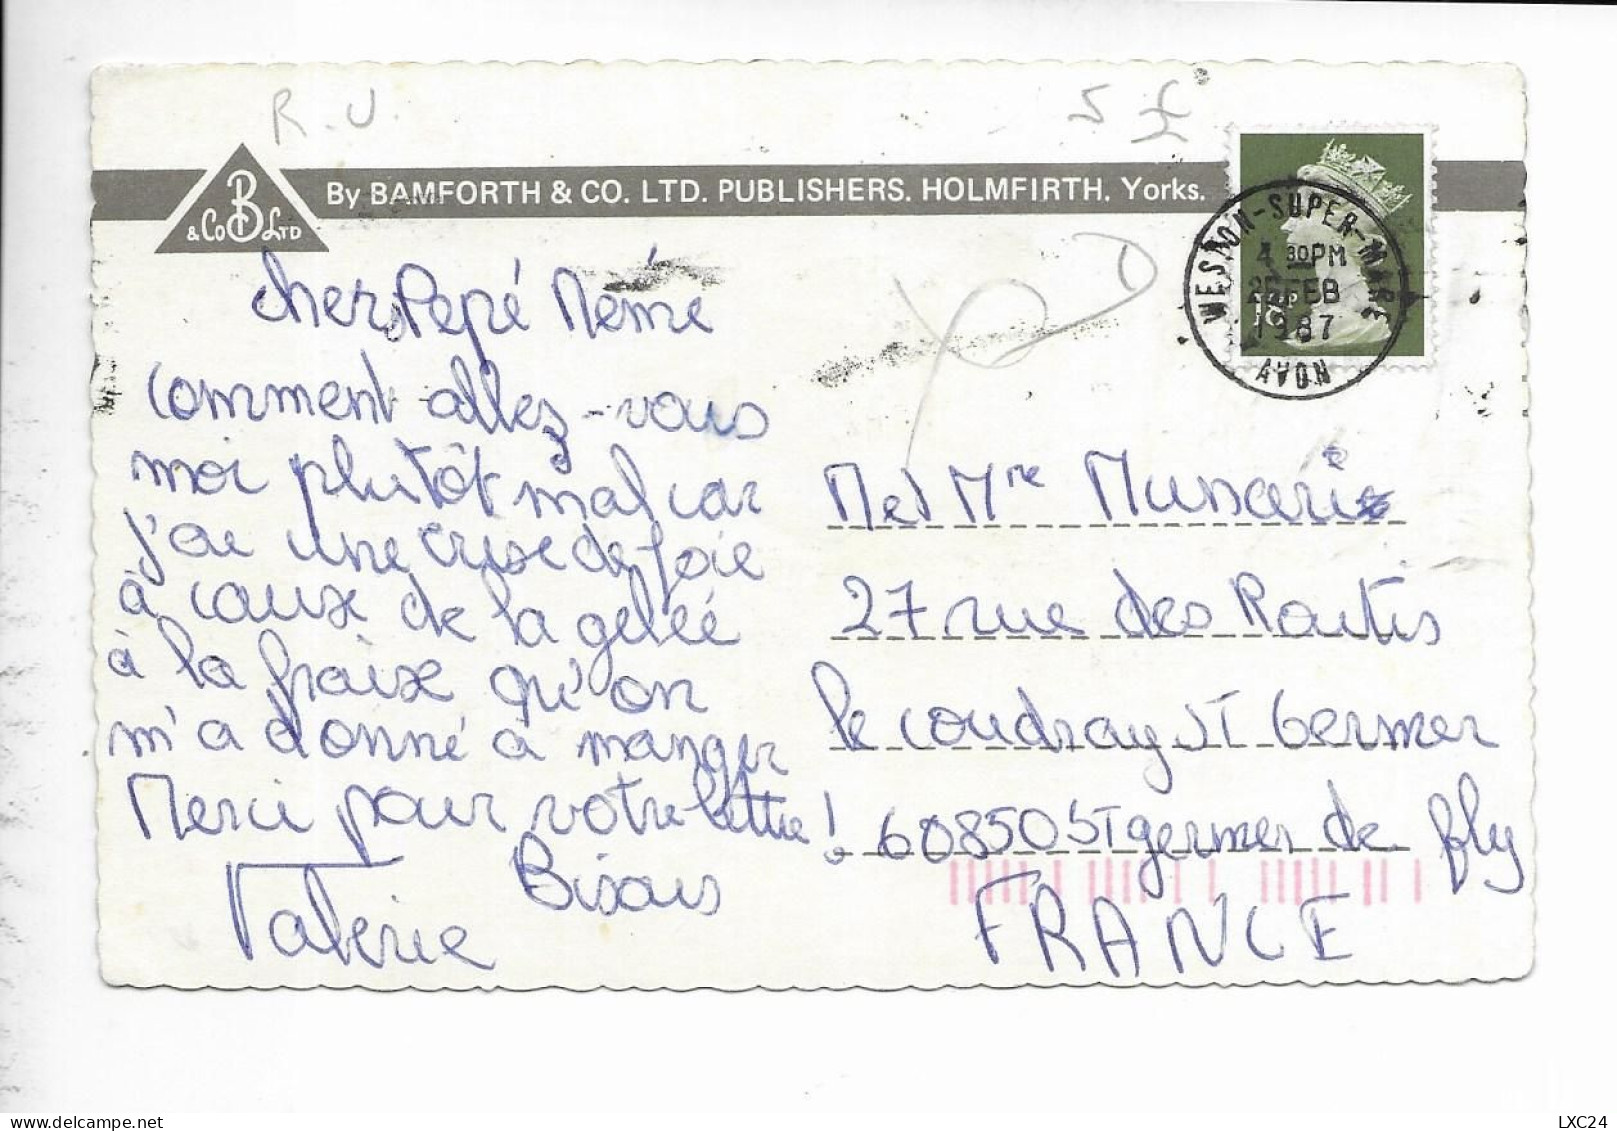 R.U.
B
& Co LTD
By BAMFORTH & CO. LTD. PUBLISHERS. HOLMFIRTH. Yorks.
WESTON-SUPER-MARE
4 30PM
FEB
1987
AVON
Chers Pepé Mémé
comment allez-vous
moi plutôt mal car
j'ai une crise de foie
à cause de la gelée
à la fraise qu'on
m'a donné à manger
Merci pour votre lettre !
Bisous
Valérie
M et Mme Munari
27 rue des Routis
le coudray ST Germer
60850 ST germer de fly
FRANCE
LXC24